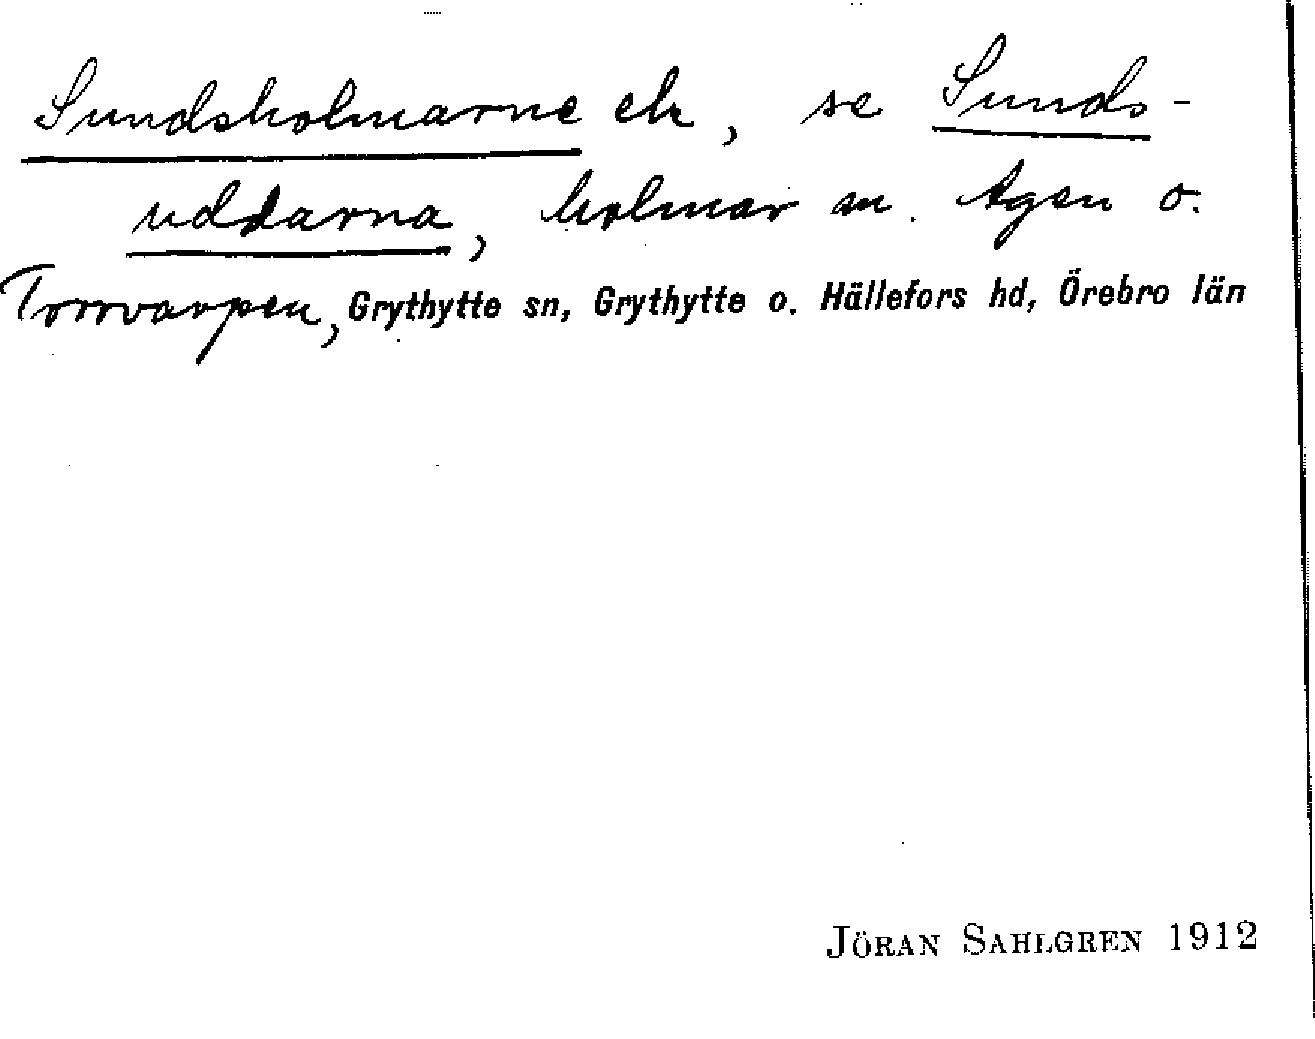 Sundsholmarne ek, se Sunds-
uddarna, holmar m. Agen o.
Torrvarpen, Grythytte sn, Grythytte o. Hällefors hd, Örebro län
JÖRAN SAHLGREN 1912